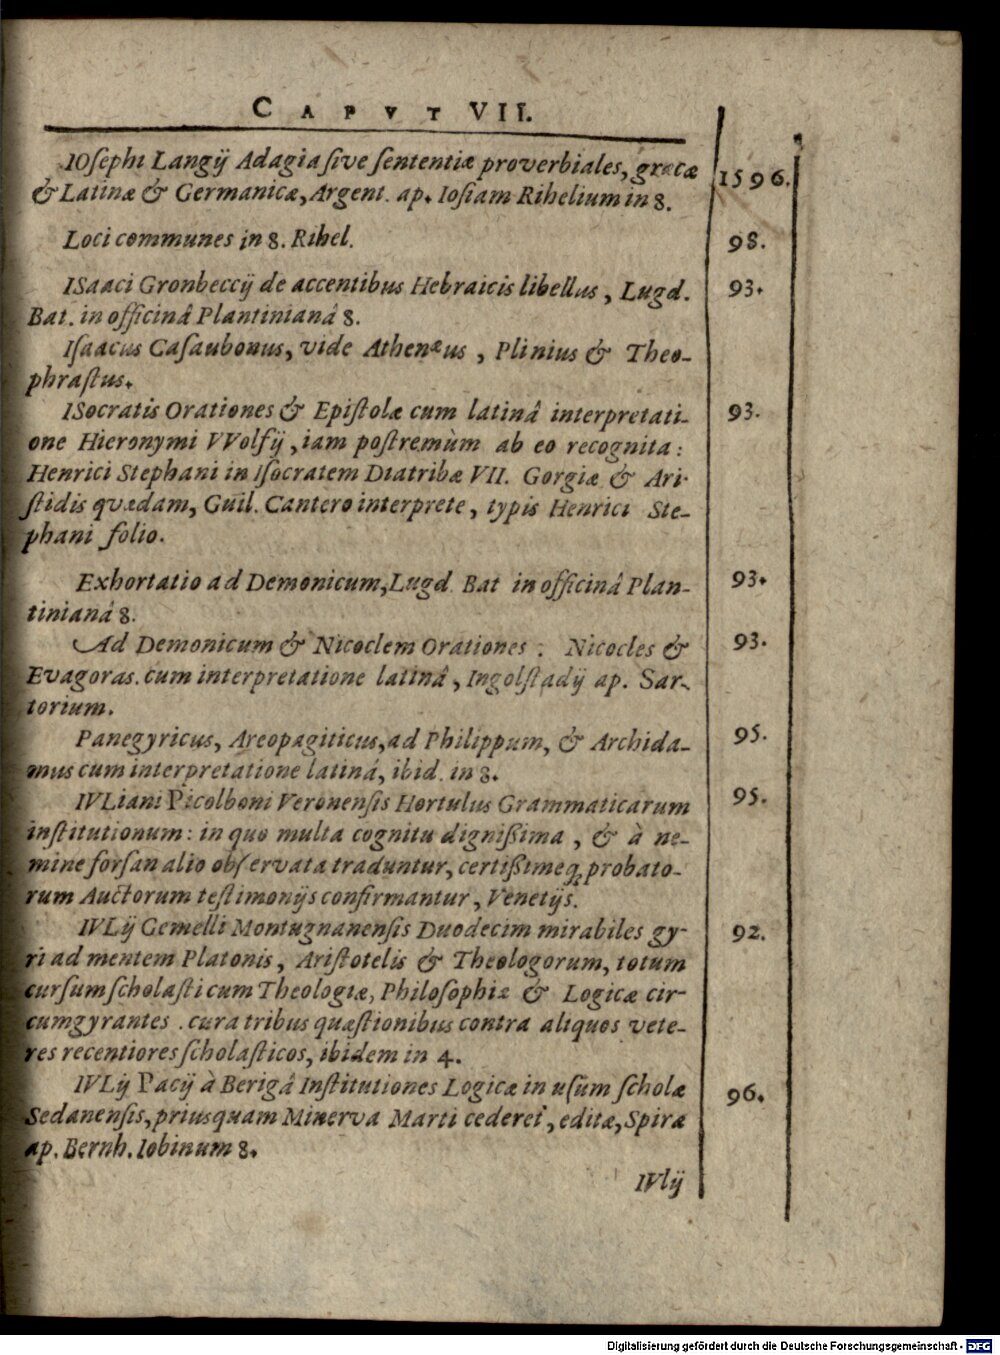 CAPVT VII.
IOſephi Langij Adagia ſive ſententiæ proverbiales, græcæ 1596.
& Latinæ & Germanicæ, Argent. ap. Ioſiam Rihelium in 8.
Loci communes in 8. Rihel. 98.
ISaaci Gronbeccij de accentibus Hebraicis libellus, Lugd. 93.
Bat. in officinâ Plantinianâ 8.
Iſaacus Caſaubonus, vide Athenæus, Plinius & Theo-
phraſtus.
ISocratis Orationes & Epiſtolæ cum latinâ interpretati- 93.
one Hieronymi VVolfij, iam poſtremùm ab eo recognita:
Henrici Stephani in Iſocratem Diatribæ VII. Gorgiæ & Ari-
ſtidis quædam, Guil. Cantero interprete, typis Henrici Ste-
phani folio.
Exhortatio ad Demonicum, Lugd. Bat in officinâ Plan- 93.
tinianâ 8.
Ad Demonicum & Nicoclem Orationes: Nicocles & 93.
Evagoras. cum interpretatione latinâ, Ingolſtadij ap. Sar-
torium.
Panegyricus, Areopagiticus, ad Philippum, & Archida- 95.
mus cum interpretatione latinâ, ibid. in 8.
IVLiani Picolboni Veronenſis Hortulus Grammaticarum 95.
inſtitutionum: in quo multa cognitu digniſſima, & à ne-
mine forſan alio obſervata traduntur, certiſſimeq; probato-
rum Auctorum teſtimonijs confirmantur, Venetijs.
IVLij Gemelli Montugnanenſis Duodecim mirabiles gy- 92.
ri ad mentem Platonis, Ariſtotelis & Theologorum, totum
curſum ſcholaſticum Theologiæ, Philoſophiæ & Logicæ cir-
cumgyrantes. cura tribus quæſtionibus contra aliquos vete-
res recentiores ſcholaſticos, ibidem in 4.
IVLij Pacij à Berigâ Inſtitutiones Logicæ in uſum ſcholæ 96.
Sedanenſis, priusquam Minerva Marti cederet, editæ, Spiræ
ap. Bernh. Iobinum 8.
IVlij
Digitalisierung gefördert durch die Deutsche Forschungsgemeinschaft - DFG